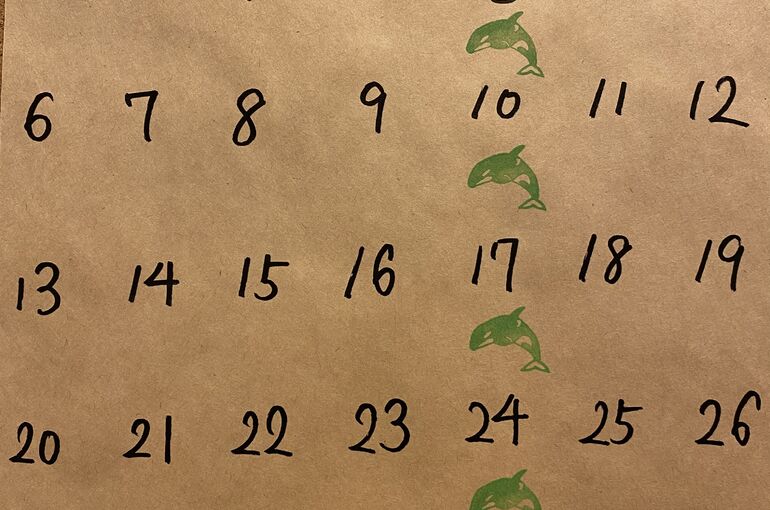 6 7 8 9 10 11 12
13 14 15 16 17 18 19
20 21 22 23 24 25 26